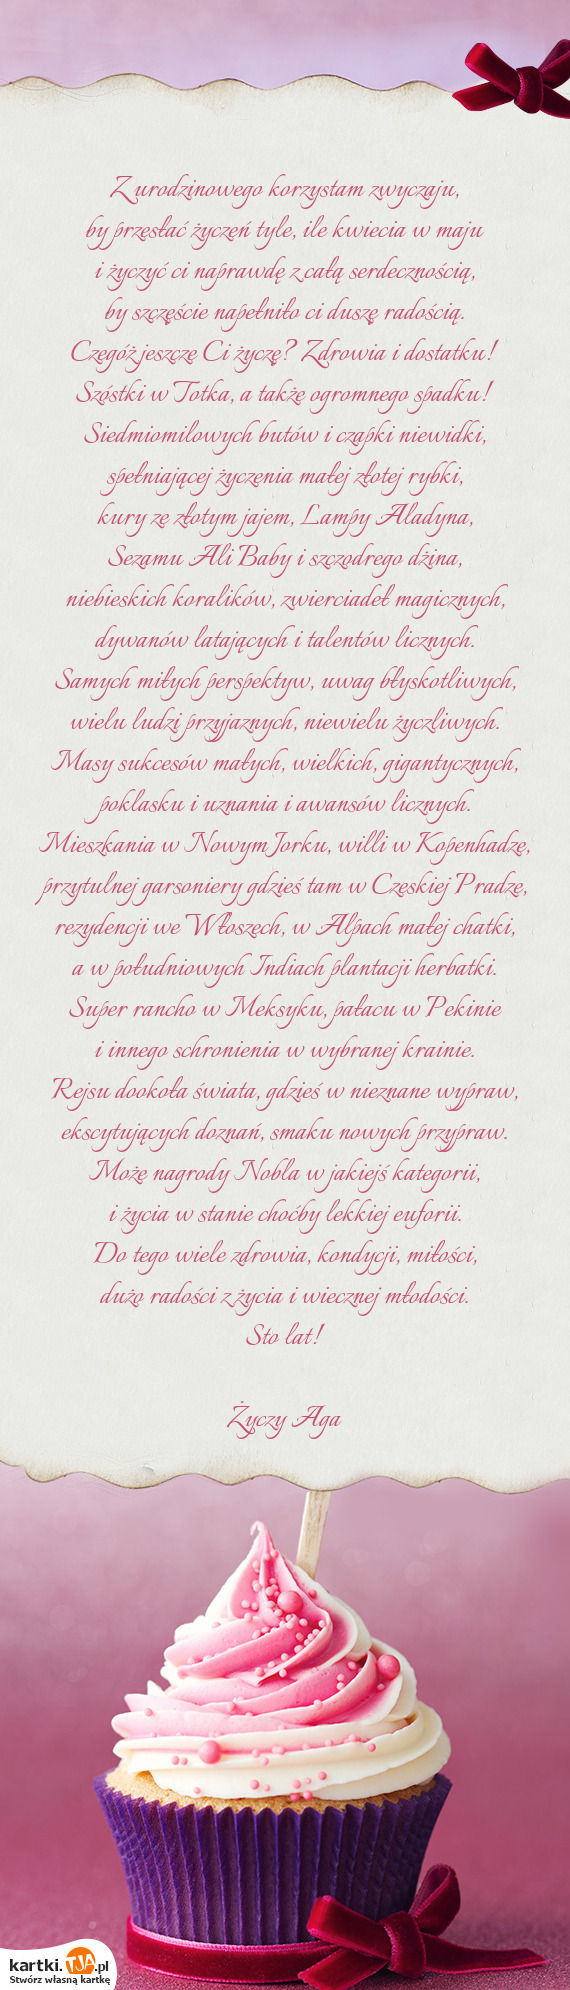 Z urodzinowego korzystam zwyczaju,
by przesłać życzeń tyle, ile kwiecia w maju
i życzyć ci naprawdę z całą serdecznością,
by szczęście napełniło ci duszę radością.
Czegóż jeszcze Ci życzę? Zdrowia i dostatku!
Szóstki w Totka, a także ogromnego spadku!
Siedmiomilowych butów i czapki niewidki,
spełniającej życzenia małej złotej rybki,
kury ze złotym jajem, Lampy Aladyna,
Sezamu Ali Baby i szczodrego dżina,
niebieskich koralików, zwierciadeł magicznych,
dywanów latających i talentów licznych.
Samych miłych perspektyw, uwag błyskotliwych,
wielu ludzi przyjaznych, niewielu życzliwych.
Masy sukcesów małych, wielkich, gigantycznych,
poklasku i uznania i awansów licznych.
Mieszkania w Nowym Jorku, willi w Kopenhadze,
przytulnej garsoniery gdzieś tam w Czeskiej Pradze,
rezydencji we Włoszech, w Alpach małej chatki,
a w południowych Indiach plantacji herbatki.
Super rancho w Meksyku, pałacu w Pekinie
i innego schronienia w wybranej krainie.
Rejsu dookoła świata, gdzieś w nieznane wypraw,
ekscytujących doznań, smaku nowych przypraw.
Może nagrody Nobla w jakiejś kategorii,
i życia w stanie choćby lekkiej euforii.
Do tego wiele zdrowia, kondycji, miłości,
dużo radości z życia i wiecznej młodości.
Sto lat!
Życzy Aga
kartki.TJA.pl
Stwórz własną kartkę